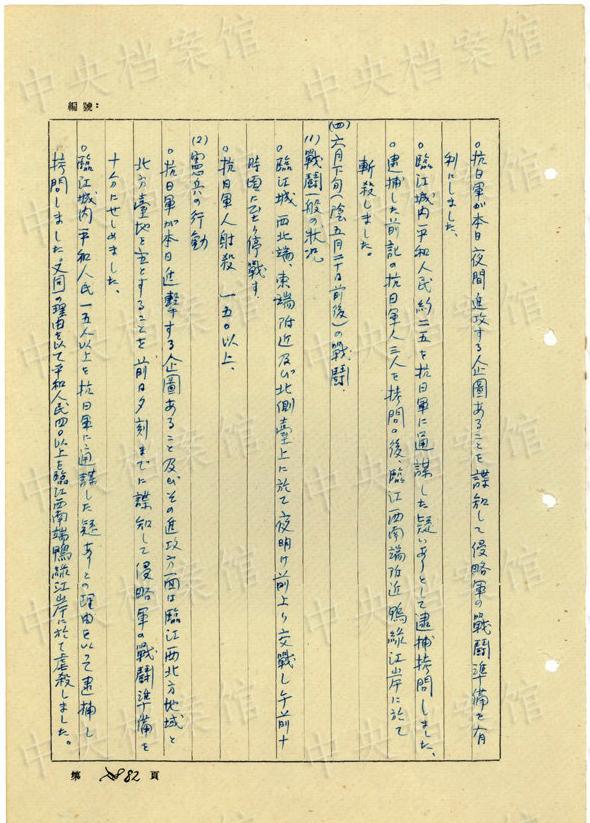 編號：
○抗日軍が本日夜間進攻する企圖あることを諜知して侵略軍の戰鬪準備を有
利にしました。
○臨江城内平和人民約二五を抗日軍に通謀した疑いありとして逮捕拷問しました、
○逮捕した前記の抗日軍人三人を拷問の後、臨江西南端附近鴨綠江岸に於て
斬殺しました。
(四)六月下旬(陰五月二十日前後)の戰鬪、
(1)戰鬪一般の狀況
○臨江城、西北端、東端附近及び北側臺上に於て夜明け前より交戰し午前十
時頃に至り停戰す、
○抗日軍人射殺 一五〇以上、
(2)憲兵の行動
○抗日軍が本日進擊する企圖あること及びその進攻方面は臨江西北方地域と
北方臺地を主とすることを前日夕刻までに諜知して侵略軍の戰鬪準備を
十分にせしめました、
○臨江城内平和人民一五人以上を抗日軍に通謀した疑ありとの理由を以って逮捕し
拷問しました。又同一の理由を以て平和人民四〇以上を臨江西南端鴨綠江岸に於て虐殺しました。
第 82 頁
中央档案馆